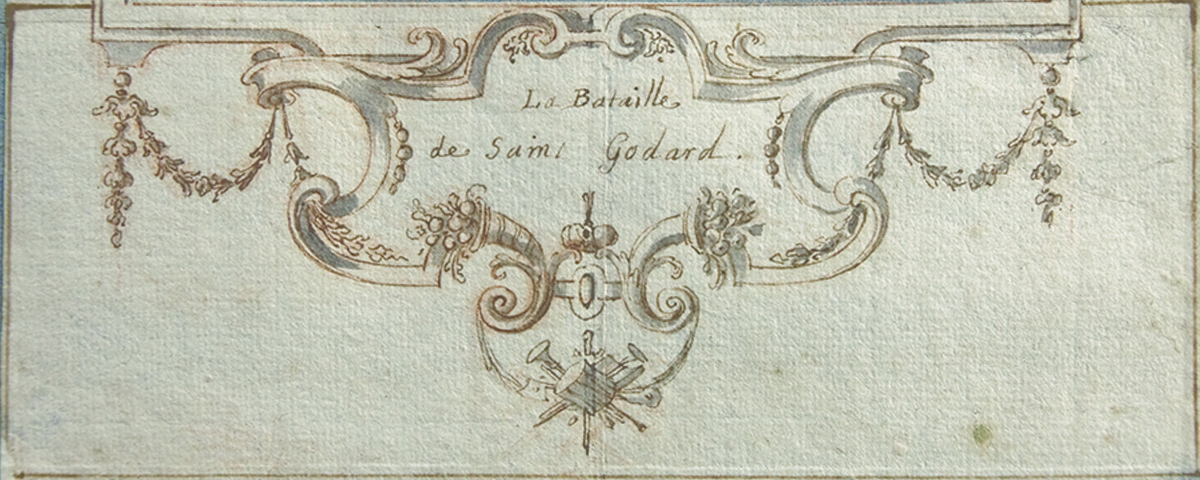 La Bataille
de Saint Godard.